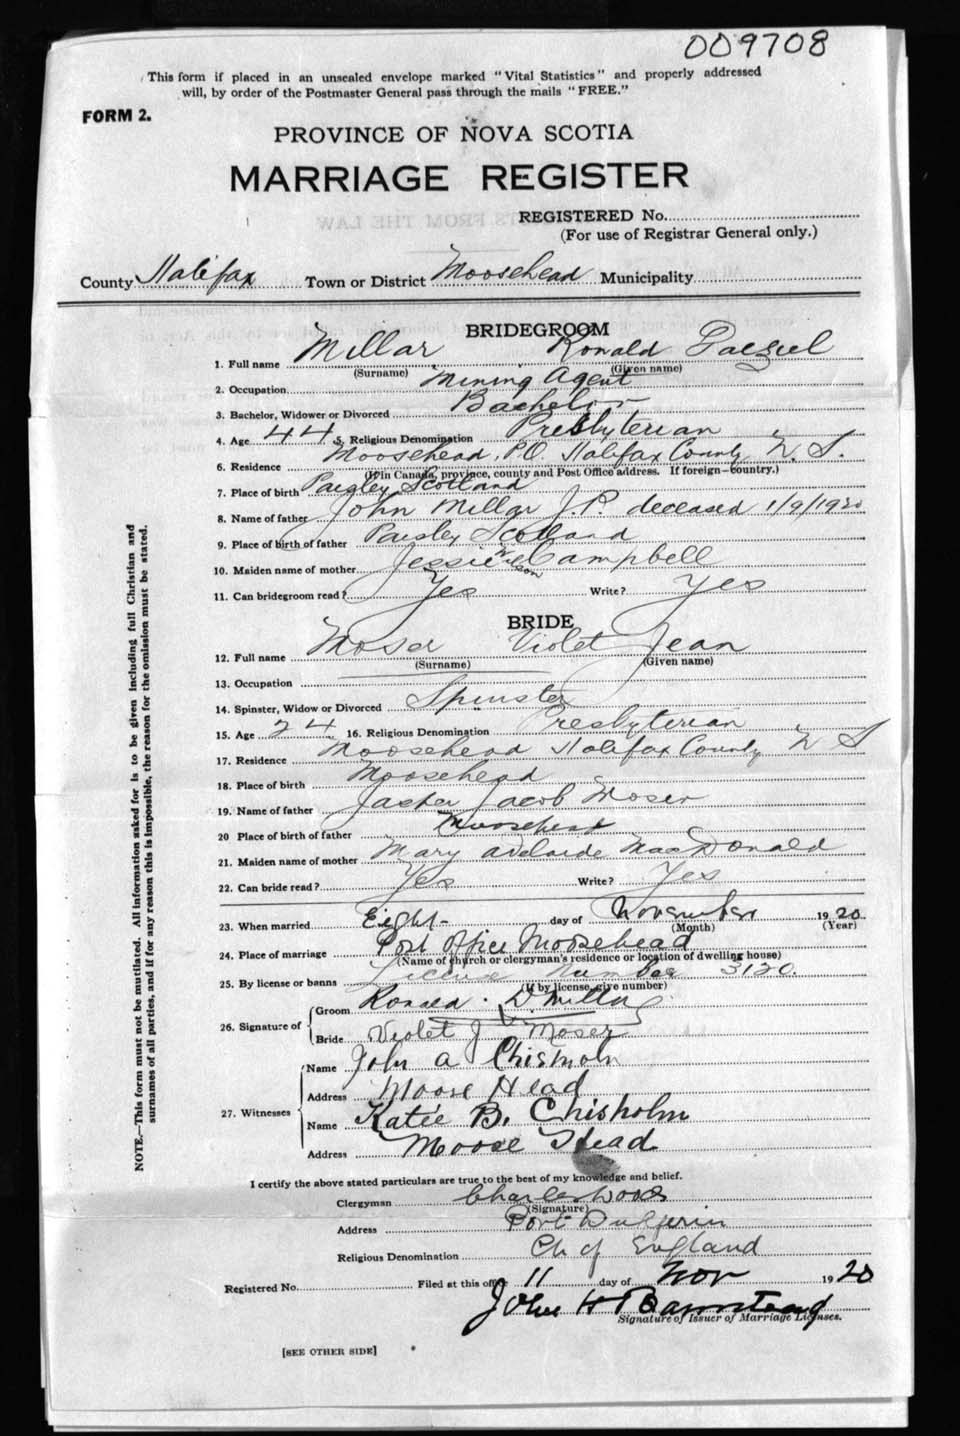 009708
This form if placed in an unsealed envelope marked "Vital Statistics" and properly addressed
will, by order of the Postmaster General pass through the mails "FREE."
FORM 2.
PROVINCE OF NOVA SCOTIA
MARRIAGE REGISTER
REGISTERED No.
(For use of Registrar General only.)
County Halifax Town or District Moosehead Municipality
BRIDEGROOM
1. Full name Millar Ronald
(Surname) (Given name)
2. Occupation Mining Agent
3. Bachelor, Widower or Divorced Bachelor
4. Age 44 5. Religious Denomination Presbyterian
6. Residence Moosehead, P.O. Halifax County N. S.
(If in Canada, province, county and Post Office address. If foreign—country.)
7. Place of birth Paisley Scotland
8. Name of father John Millar J.P. deceased 1/9/1920
9. Place of birth of father Paisley Scotland
10. Maiden name of mother Jessie Wilson Campbell
11. Can bridegroom read? Yes Write? Yes
BRIDE
12. Full name Moser Violet Jean
(Surname) (Given name)
13. Occupation
14. Spinster, Widow or Divorced Spinster
15. Age 24 16. Religious Denomination Presbyterian
17. Residence Moosehead Halifax County N S
18. Place of birth Moosehead
19. Name of father Jacob Moser
20 Place of birth of father Moosehead
21. Maiden name of mother Mary Adelaide MacDonald
22. Can bride read? Yes Write? Yes
23. When married Eight day of November 1920
(Month) (Year)
24. Place of marriage Post Office Moosehead
(Name of church or clergyman's residence or location of dwelling house)
25. By license or banns License Number 3120.
(If by license, give number)
26. Signature of
Groom Ronald. D Millar
Bride Violet J Moser
27. Witnesses
Name John A Chisholm
Address Moose Head
Name Katie B. Chisholm
Address Moose Head
I certify the above stated particulars are true to the best of my knowledge and belief.
Clergyman Charles Wood
(Signature)
Address Port Dufferin
Religious Denomination Ch of England
Registered No. Filed at this office 11 day of Nov 1920
John H
Signature of Issuer of Marriage Licenses.
[SEE OTHER SIDE]
NOTE.—This form must not be mutilated. All information asked for is to be given including full Christian and
surnames of all parties, and if for any reason this is impossible, the reason for the omission must be stated.